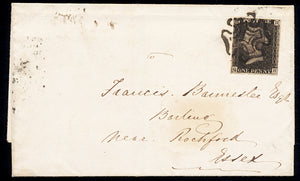 ONE PENNY
Francis Bannister Esqr
Barling
near Rochford
Essex